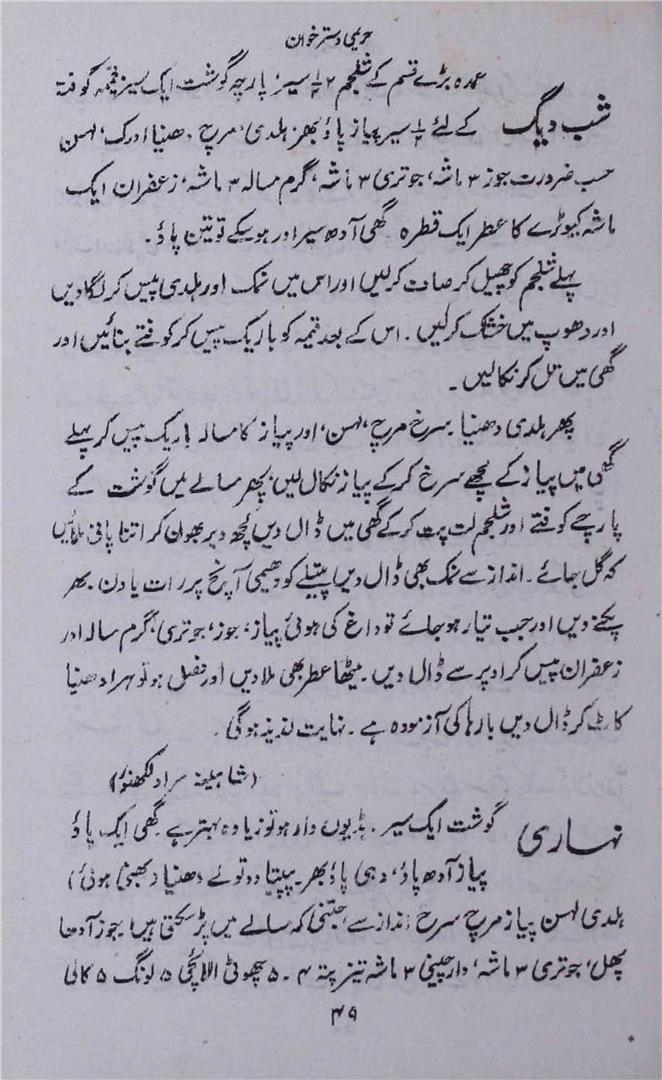 حریمی دستر خوان
عمدہ بڑے قسم کے شلجم ۲ ۱/۲ سیر پارچہ گوشت ایک سیر قیمہ کوفتہ
شب دیگ کے لئے ۱/۲ سیر پیاز پاؤ بھر ہلدی، مرچ، دھنیا ادرک، لہسن
حسب ضرورت جوز ۳ ماشہ، جوتری ۳ ماشہ، گرم مسالہ ۳ ماشہ، زعفران ایک
ماشہ کیوڑے کا عطر ایک قطرہ گھی آدھ سیر اور ہوسکے تو تین پاؤ۔
پہلے شلجم کو چھیل کر صاف کرلیں اور اس میں نمک اور ہلدی پیس کر لگادیں
اور دھوپ میں خشک کرلیں۔ اس کے بعد قیمہ کو باریک پیس کر کوفتے بنائیں اور
گھی میں تل کر نکالیں۔
پھر ہلدی دھنیا سرخ مرچ، لہسن، اور پیاز کا مسالہ باریک پیس کر پہلے
گھی میں پیاز کے لچھے سرخ کرکے پیاز نکال لیں، پھر مسالے میں گوشت کے
پارچے کوفتے اور شلجم لت پت کرکے گھی میں ڈال دیں کچھ دیر بھون کر اتنا پانی ملائیں
کہ گل جائے۔ انداز سے نمک بھی ڈال دیں پتیلے کو دھیمی آنچ پر رات یا دن بھر
پکنے دیں اور جب تیار ہوجائے تو داغ کی ہوئی پیاز، جوز، جوتری، گرم مسالہ اور
زعفران پیس کر اوپر سے ڈال دیں۔ میٹھا عطر بھی ملادیں اور فصل ہو تو ہرا دھنیا
کاٹ کر ڈال دیں بارہا کی آزمودہ ہے۔ نہایت لذیذ ہوگی۔
(شاہینہ مراد لکھنؤ)
نہاری گوشت ایک سیر۔ ہڈیوں دار ہو تو زیادہ بہتر ہے گھی ایک پاؤ
پیاز آدھ پاؤ، دہی پاؤ بھر پپیتا دو تولے دھنیا (بھنی ہوئی)
ہلدی لہسن پیاز مرچ سرخ انداز سے جتنی کہ سالے میں پڑسکتی ہیں، جوز آدھا
پھل، جوتری ۳ ماشہ، دار چینی ۳ ماشہ تیز پتہ ۴۔ ۵ چھوٹی الائچی ۵ لونگ ۵ کالی
۴۹